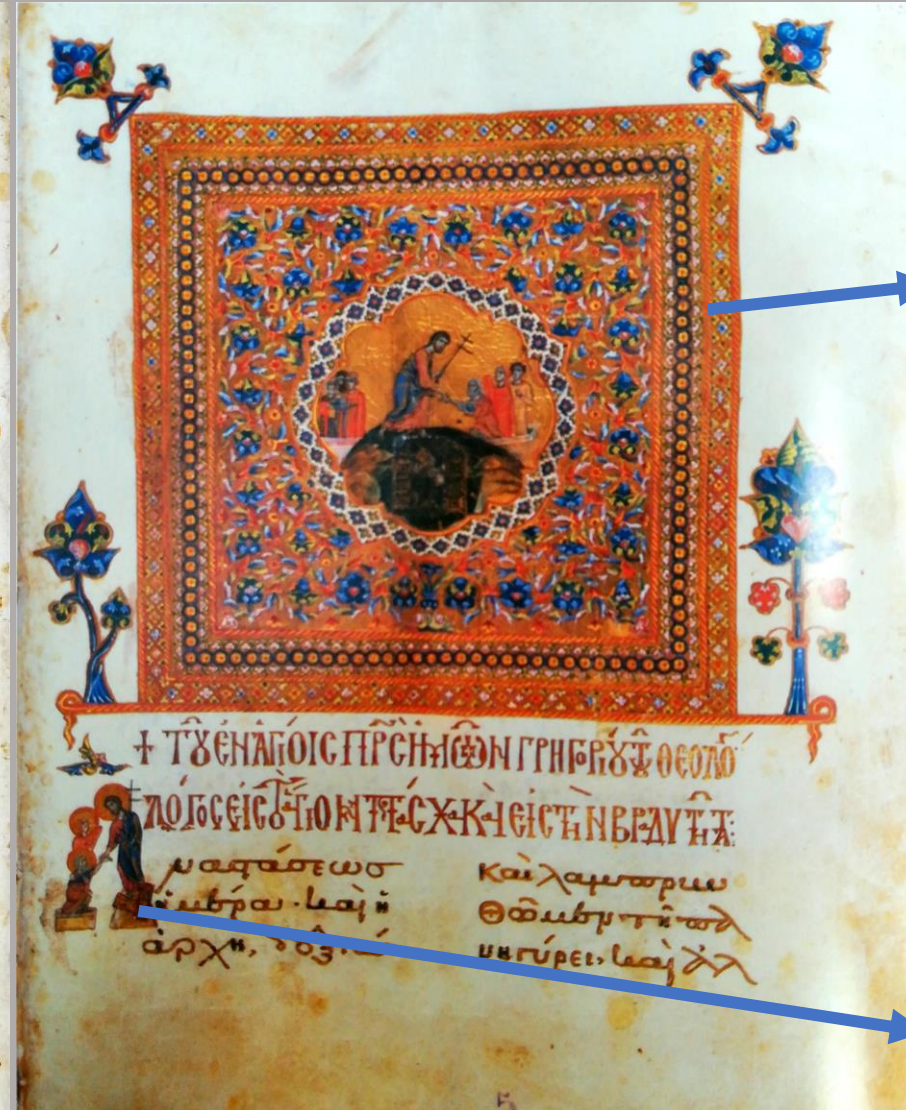 + ΤȢ ΕΝ ΑΓΙΟΙC ΠΡC ΗΜΩΝ ΓΡΗΓΟΡΙȢ ΤȢ ΘΕΟΛΟ
ΛΟΓΟC ΕΙC ΤΟ ΑΓΙΟΝ ΚΑΙ ΕΙC ΤΗΝ ΒΡΑΔΥΤΗΤΑ:
ναστάσεωσ
ἡμέρα· καὶ ἡ
ἀρχὴ,
Καὶ λαμπρυν
θῶμεν τῆ πα
νηγύρει· καὶ ἀλ